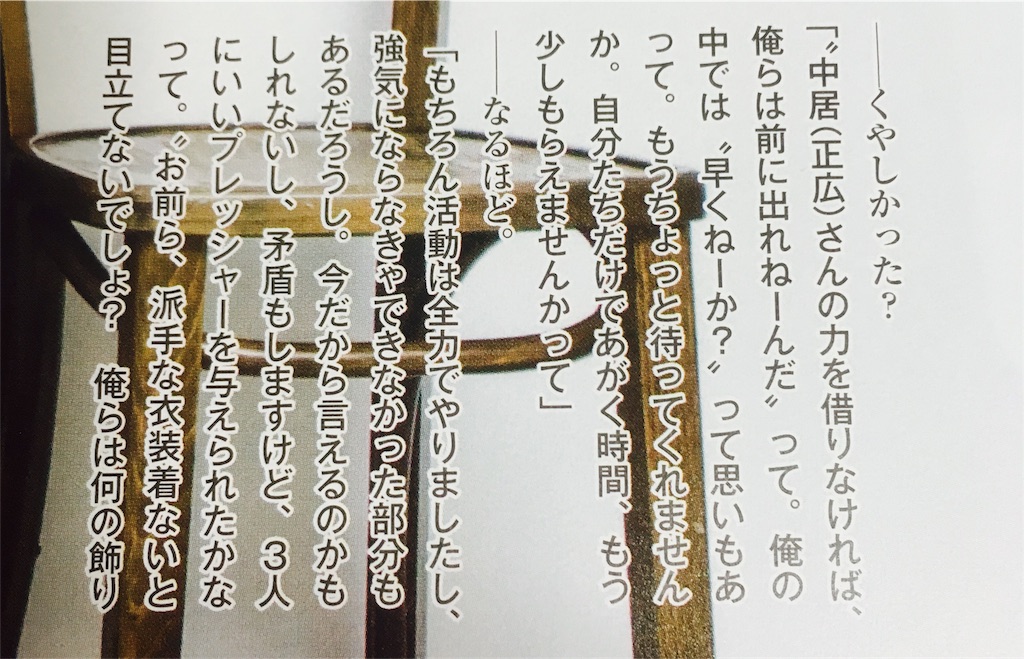 ――くやしかった？
「〝中居（正広）さんの力を借りなければ、
俺らは前に出れねーんだ〟って。俺の
中では〝早くねーか？〟って思いもあ
って。もうちょっと待ってくれません
か。自分たちだけであがく時間、もう
少しもらえませんかって」
――なるほど。
「もちろん活動は全力でやりましたし、
強気にならなきゃできなかった部分も
あるだろうし。今だから言えるのかも
しれないし、矛盾もしますけど、３人
にいいプレッシャーを与えられたかな
って。〝お前ら、派手な衣装着ないと
目立てないでしょ？　俺らは何の飾り